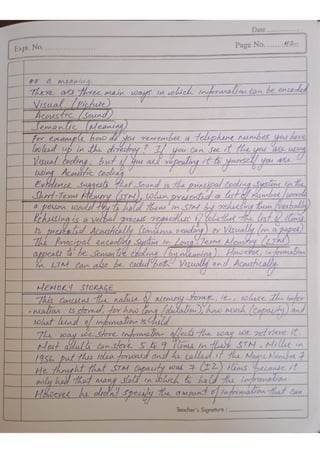 Date
Expt. No.
Page No.
or a meaning.
There are three main ways in which information can be encoded
Visual (Picture)
Acoustic (Sound)
Semantic (Meaning)
For example how do you remember a telephone number you have
looked up in the directory? If you can see it the you are using
Visual coding, but if you are repeating it to yourself you are
using Acoustic coding
Evidence suggests that Sound is the principal coding system in the
Short-Term Memory (STM). When presented a list of number, words
a person would try to hold them in STM by rehearsing them (verbally)
Rehearsing is a verbal process regardless of whether the list of items
is presented Acoustically (someone reading) or Visually (on a paper)
The Principal encoding system in Long Term Memory (LTM)
appears to be Semantic coding (by meaning). However, information
in LTM can also be coded both Visually and Acoustically.
MEMORY STORAGE
This concerns the nature of Memory storage, i.e., where the infor
-mation is stored, for how long (duration), how much (capacity) and
what kind of information is held.
The way we store information affects the way we retrieve it.
Most adults can store 5 to 9 items in their STM. Miller in
1956 put this idea forward and he called it the Magic Number 7
He thought that STM capacity was 7 (±2) items because it
only had that many slots in which to hold the information
However he didn't specify the amount of information that can
Teacher's Signature :